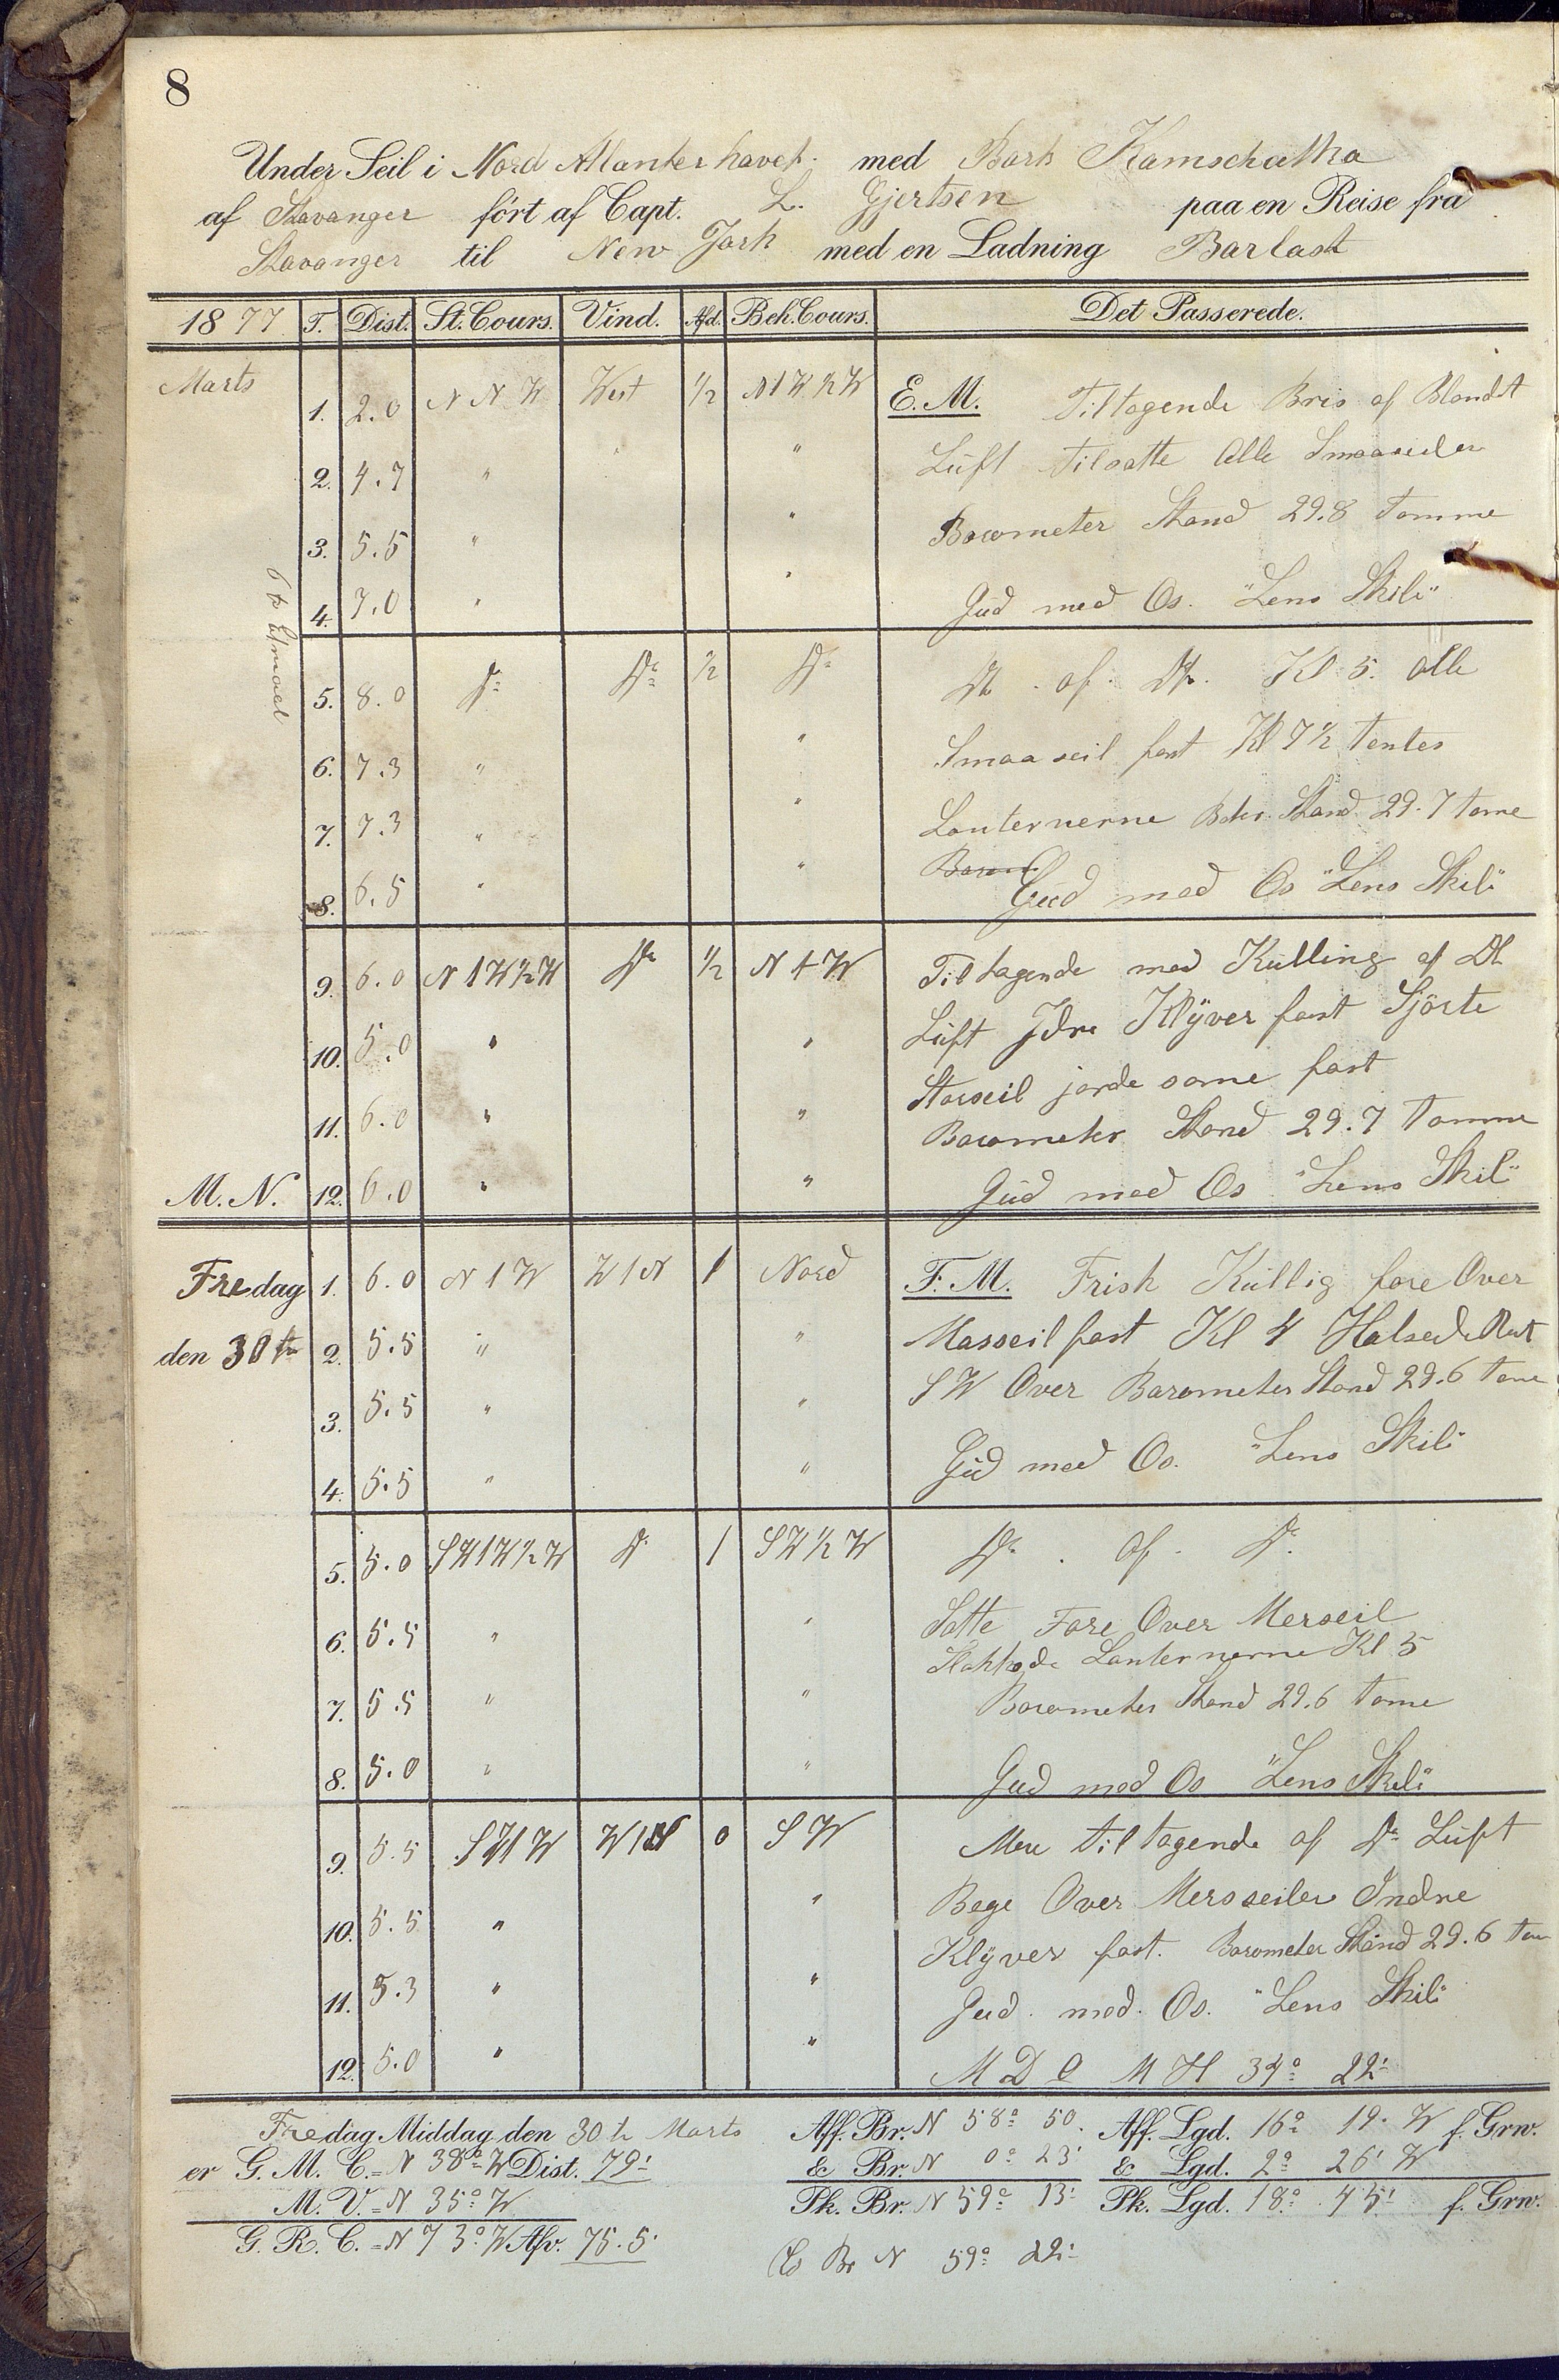 8
Under Seil i Nord Atlanterhavet. med Bark Kamschatka
af Stavanger ført af Capt. L. Gjertsen paa en Reise fra
Stavanger til New York med en Ladning Barlast
1877 T. Dist. St. Cours. Vind. Afd. Beh. Cours. Det Passerede.
Marts 1. 2.0 N N W West 1/2 N 1 W 1/2 W E.M. Tiltagende Bris af Blandt
2. 4.7 " " " Luft tilsatte Alle Smaaseiler
3. 5.5 " " Barometer Stand 29.8 Tomme
4. 7.0 " " Gud med Os. "Lens Skib"
Etmaal
5. 8.0 Do Do 1/2 Do Do. af. Do. Kl 5. alle
6. 7.3 " " Smaaseil fast Kl 7 1/2 tentes
7. 7.3 " " Lanternerne Betr. Stand 29.7 tome
8. 6.5 " " Gud med Os "Lens Skib"
9. 6.0 N 1 W 1/2 W Do 1/2 N 1 W Tiltagende med Kulling af Do
10. 5.0 " " Luft Ydre Klyver fast Sjørte
11. 6.0 " " Storseil jorde same fast
Barometer Stand 29.7 Tomme
M. N. 12. 6.0 " " Gud med Os "Lens Skib"
Fredag 1. 6.0 N 1 W W 1 N 1 Nord F.M. Frisk Kullig fore Over
den 30te 2. 5.5 " " Masseil fast Kl 4 Halsede Rut
3. 5.5 " " S W Over Barometer Stand 29.6 tome
4. 5.5 " " Gud med Os. "Lens Skib"
5. 5.0 S W 1 W 1/2 W Do 1 S W 1/2 W Do. Af. Do.
6. 5.5 " " Satte Fore Over Merseil
Slokkede Lanternerne Kl 5
7. 5.5 " " Barometer Stand 29.6 tome
8. 5.0 " " Gud med Os "Lens Skib"
9. 5.5 S W 1 W 0 S W Mere tiltagende af Do Luft
10. 5.5 " " Bege Over Mersseiler Indre
Klyver fast. Barometer Stand 29.6 tom
11. 5.3 " " Gud. med. Os. "Lens Skib"
12. 5.0 " " M D O M H 34° 22'
Fredag Middag den 30te Marts Aff. Br. N 58° 50. Aff. Lgd. 16° 19. W f. Grw.
er G. M. C. = N 38° W Dist. 79' & Br. N 0° 23' & Lgd. 2° 26' W
M. V. = N 35° W Pk. Br. N 59° 13' Pk. Lgd. 18° 45' f. Grw.
G. R. C. = N 73° W Afv. 75.5' Br N 59° 22'